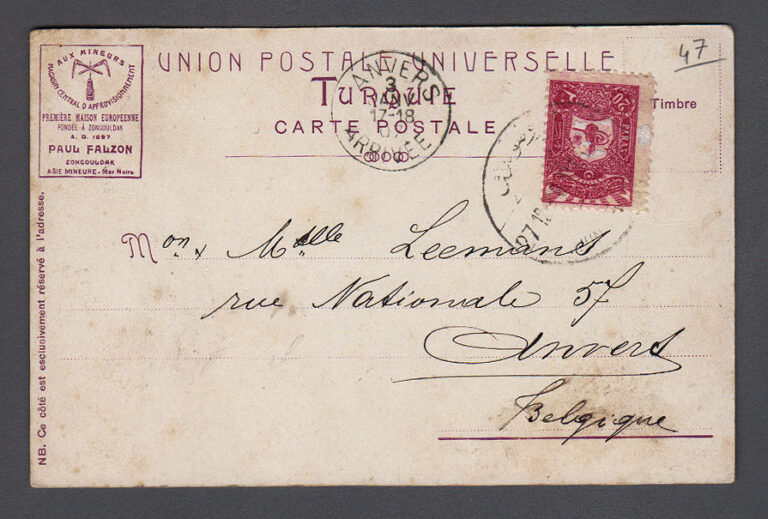 AUX MINEURS
MAGASIN CENTRAL D'APPROVISIONNEMENT
PREMIÈRE MAISON EUROPEENNE
FONDÉE À ZONGOULDAK
A. D. 1897
PAUL FALZON
ZONGOULDAK
ASIE MINEURE - Mer Noire
UNION POSTALE UNIVERSELLE
TURQUIE
CARTE POSTALE
47
Timbre
ANVERS
3
JANV
17-18
07
ARRIVÉE
20
27 12
Mlle Leemans
rue Nationale 57
Anvers
Belgique
NB. Ce côté est exclusivement réservé à l'adresse.